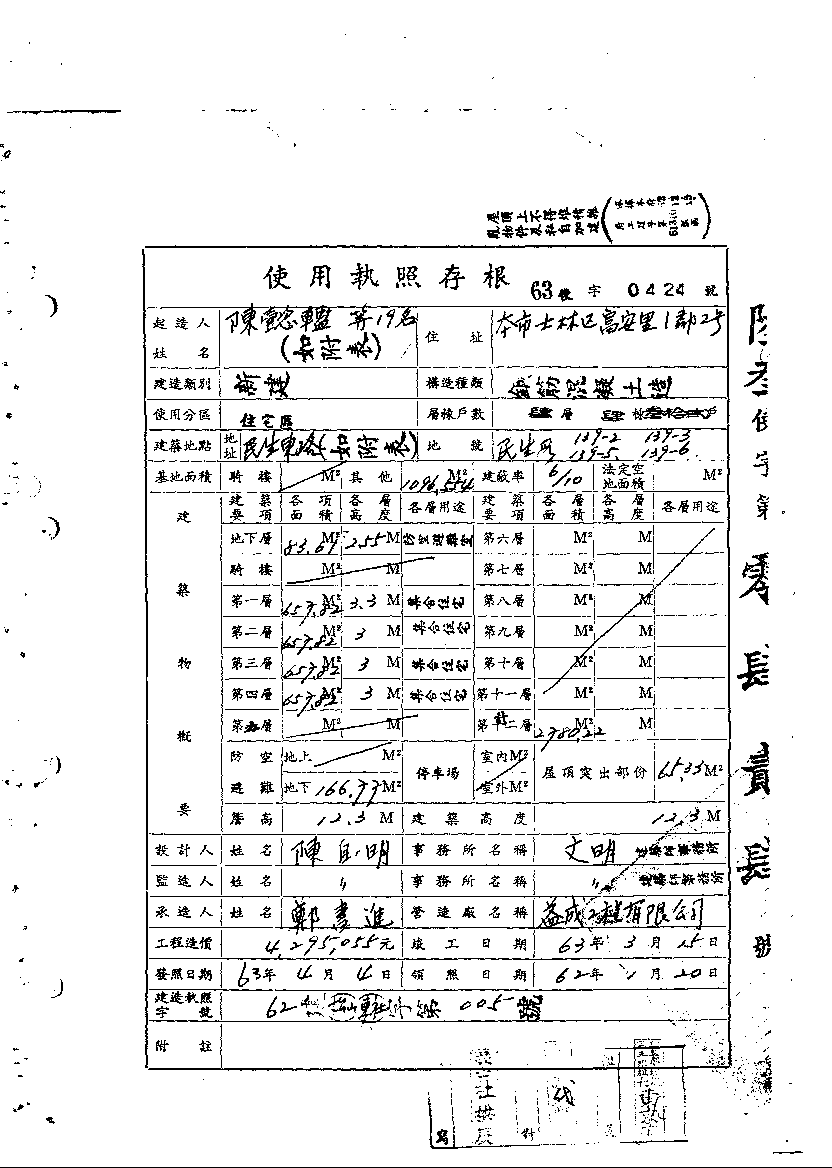 使用執照存根 63使字 0424 號
起造人姓名 等19名 (如附表) 住址 本市士林區富安里1鄰2號
建造類別 新建 構造種類 鋼筋混凝土造
使用分區 住宅區 層棟戶數 層
建築地點 地址 民生東路(如附表) 地號 民生段 139-2 139-3 139-5 139-6
基地面積 騎樓 M² 其他 M² 1096.554 建蔽率 6/10 法定空地面積 M²
建築物概要
建築要項 各項面積 各層高度 各層用途 建築要項 各層面積 各層高度 各層用途
地下層 83.67 M² 2.55 M 防空避難室 第六層 M² M
騎樓 M² M 第七層 M² M
第一層 657.82 M² 3.3 M 集合住宅 第八層 M² M
第二層 657.82 M² 3 M 集合住宅 第九層 M² M
第三層 657.82 M² 3 M 集合住宅 第十層 M² M
第四層 657.82 M² 3 M 集合住宅 第十一層 M² M
第五層 M² M 2780.22
防空避難 地上 M² 停車場 室內 M² 屋頂突出部份 65.35 M²
地下 166.77 M² 室外 M²
簷高 12.3 M 建築高度 12.3 M
設計人 姓名 陳自明 事務所名稱 文明 建築師事務所
監造人 姓名 〃 事務所名稱 〃 建築師事務所
承造人 姓名 鄭書進 營造廠名稱 益成工程有限公司
工程造價 4,295,055元 竣工日期 63年3月15日
發照日期 63年4月4日 領照日期 62年1月20日
建造執照字號 62 第005號
附註
陸叁使字第零肆貳肆號